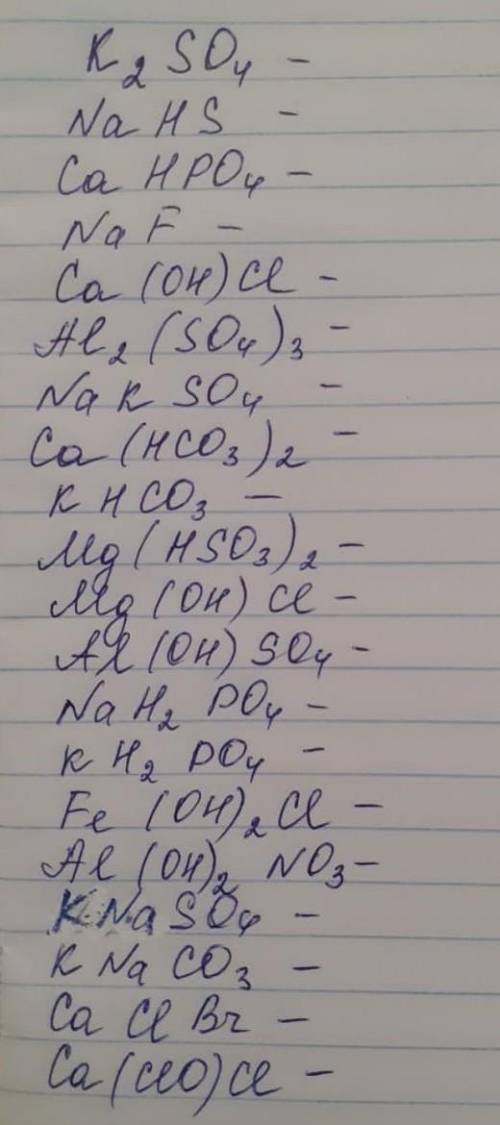 K₂SO₄ –
NaHS –
CaHPO₄ –
NaF –
Ca(OH)Cl –
Al₂(SO₄)₃ –
NaKSO₄ –
Ca(HCO₃)₂ –
KHCO₃ –
Mg(HSO₃)₂ –
Mg(OH)Cl –
Al(OH)SO₄ –
NaH₂PO₄ –
KH₂PO₄ –
Fe(OH)₂Cl –
Al(OH)₂NO₃ –
KNaSO₄ –
KNaCO₃ –
CaClBr –
Ca(ClO)Cl –